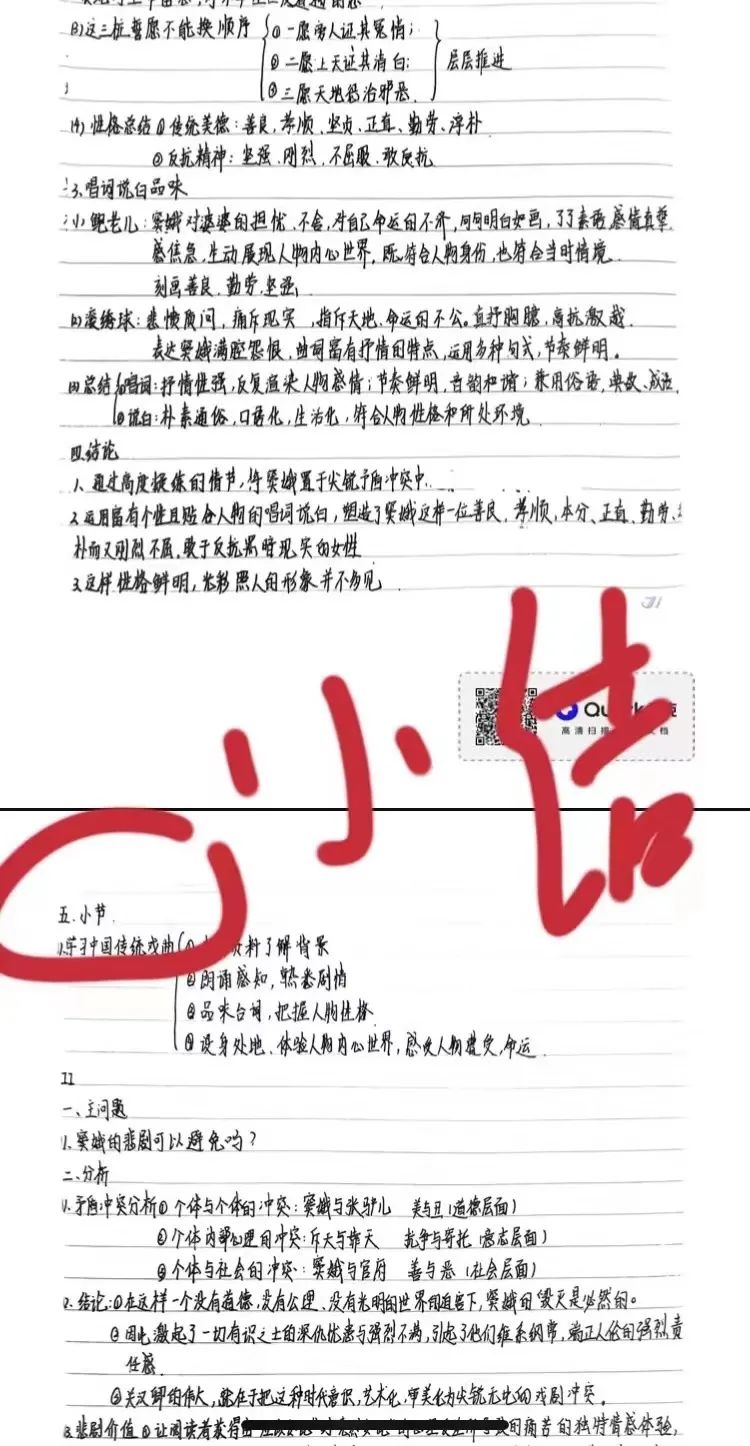 (3)这三桩誓愿不能换顺序 ①一愿旁人证其冤情;
②二愿上天证其清白; 层层推进
③三愿天地惩治邪恶.
(4)性格总结 ①传统美德:善良、孝顺、坚贞、正直、勤劳、淳朴
②反抗精神:坚强、刚烈、不屈服、敢反抗
3.唱词说白品味
鲍老儿:窦娥对婆婆的担忧、不舍,对自己命运的不齐,句句明白如画,感情真挚
生动展现人物内心世界,既符合人物身份,也符合当时情境
刻画善良、勤劳、坚强
(2)滚绣球:悲愤质问,痛斥现实,指斥天地、命运的不公。直抒胸臆,高抗激越.
表达窦娥满腔怨恨,曲词富有抒情的特点,运用多种句式,节奏鲜明。
总结 ①唱词:抒情性强,反复渲染人物感情;节奏鲜明,音韵和谐;兼用俗语、典故、成语.
②说白:朴素通俗,口语化,生活化,符合人物性格和所处环境.
四.结论
1、通过高度提炼的情节,将窦娥置于尖锐矛盾冲突中.
2.运用富有个性且贴合人物的唱词说白,塑造了窦娥这样一位善良、孝顺,本分、正直、勤劳、
朴而又刚烈不屈,敢于反抗黑暗现实的女性
3.这样性格鲜明,光彩照人的形象并不多见
小结
高清扫描
五.小节.
学习中国传统戏曲 料了解背景
②朗诵感知,熟悉剧情
③品味台词,把握人物性格
④设身处地、体验人物内心世界,感受人物遭受,命运.
II
一、主问题
1.窦娥的悲剧可以避免吗?
二、分析
1.矛盾冲突分析①个体与个体的冲突:窦娥与张驴儿 美与丑(道德层面)
②个体内部心理的冲突:斥天与靠天 抗争与寄托(意志层面)
③个体与社会的冲突:窦娥与官府 善与恶(社会层面)
2.结论:①在这样一个没有道德、没有公理、没有光明的世界的迫害下,窦娥的毁灭是必然的。
②因此激起了一切有识之士的深仇忧患与强烈不满,引起了他们维系纲常,端正人伦的强烈责
任感.
③关汉卿的伟大,就在于把这种时代意识,艺术化,审美化为尖锐无比的戏剧冲突。
3.悲剧价值①让阅读者获得 的痛苦的独特情感体验,